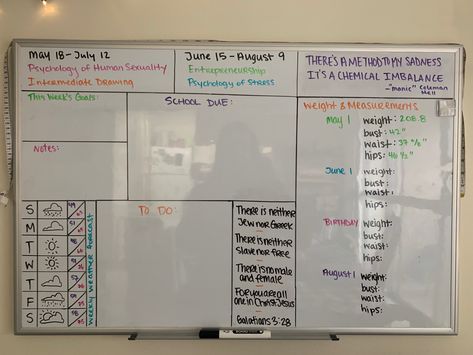 May 18-July 12
Psychology of Human Sexuality
Intermediate Drawing
June 15-August 9
Entrepreneurship
Psychology of Stress
THERE'S A METHOD TO MY SADNESS
IT'S A CHEMICAL IMBALANCE
-"manic" Coleman
Hell
This Week's Goals:
SCHOOL DUE:
Notes:
Weight & Measurements
May 1
weight: 208.8
bust: 42"
waist:
hips:
June 1
weight:
bust:
waist:
hips:
BIRTHDAY
weight:
bust:
waist:
hips:
August 1
weight:
bust:
waist:
hips:
S
M
T
W
T
F
S
weekly weather forecast
TO DO:
There is neither
Jew nor Greek
There is neither
slave nor free
There is no male
and female
FOR you are all
one in Christ Jesus
Galatians 3:28